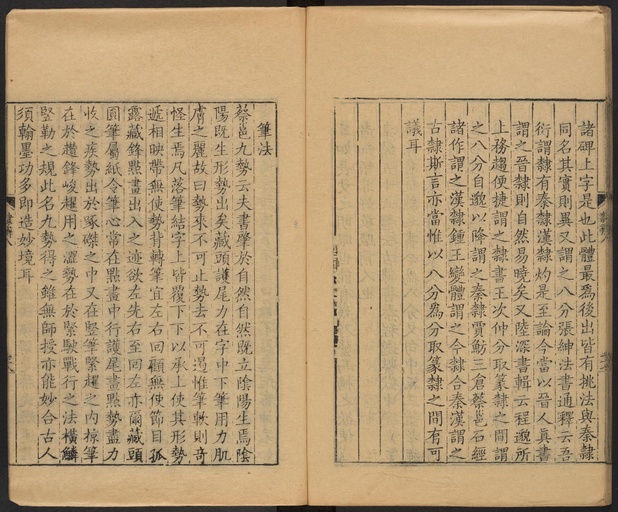 諸碑上字是也此體最爲後出皆有挑法與秦隸
同名其實則異又謂之八分張紳法書通釋云吾
衍謂隸有秦隸漢隸灼是至論今當以晉人眞書
謂之晉隸則自然易曉矣又陸深書輯云程邈所
上務趨便捷謂之隸書王次仲分取篆隸之間謂
之八分自邈以降謂之秦隸賈魴三倉蔡邕石經
諸作謂之漢隸鍾王變體謂之今隸合秦漢謂之
古隸斯言亦當惟以八分爲分取篆隸之間有可
議耳
筆法
蔡邕九勢云夫書肇於自然自然既立陰陽生焉陰
陽既生形勢出矣藏頭護尾力在字中下筆用力肌
膚之麗故曰勢來不可止勢去不可遏惟筆軟則奇
怪生焉凡落筆結字上皆覆下下以承上使其形勢
遞相映帶無使勢背轉筆宜左右回顧無使節目孤
露藏鋒點畫出入之迹欲左先右至回左亦爾藏頭
圓筆屬紙令筆心常在點畫中行護尾畫點勢盡力
收之疾勢出於啄磔之中又在豎筆緊趯之內掠筆
在於趲鋒峻趯用之澀勢在於緊駃戰行之法橫鱗
堅勒之規此名九勢得之雖無師授亦能妙合古人
須翰墨功多卽造妙境耳